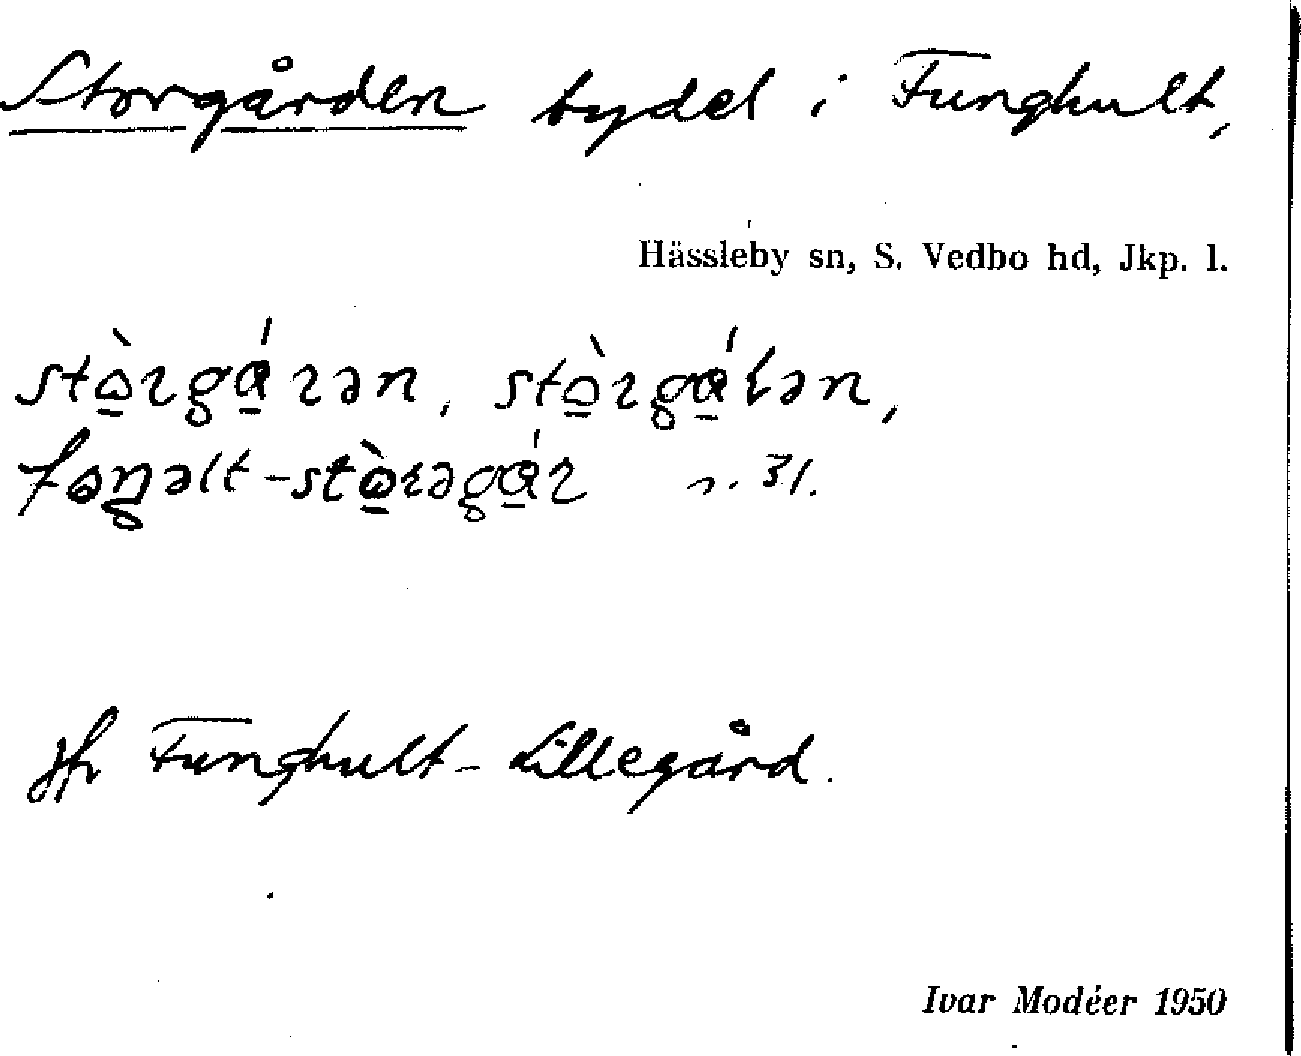 Storgården bydel i Funghult,
Hässleby sn, S. Vedbo hd, Jkp. l.
stòrgárən, stòrgálən,
fɵŋəlt-stòrəgár n. 31.
jfr Funghult-Lillegård.
Ivar Modéer 1950